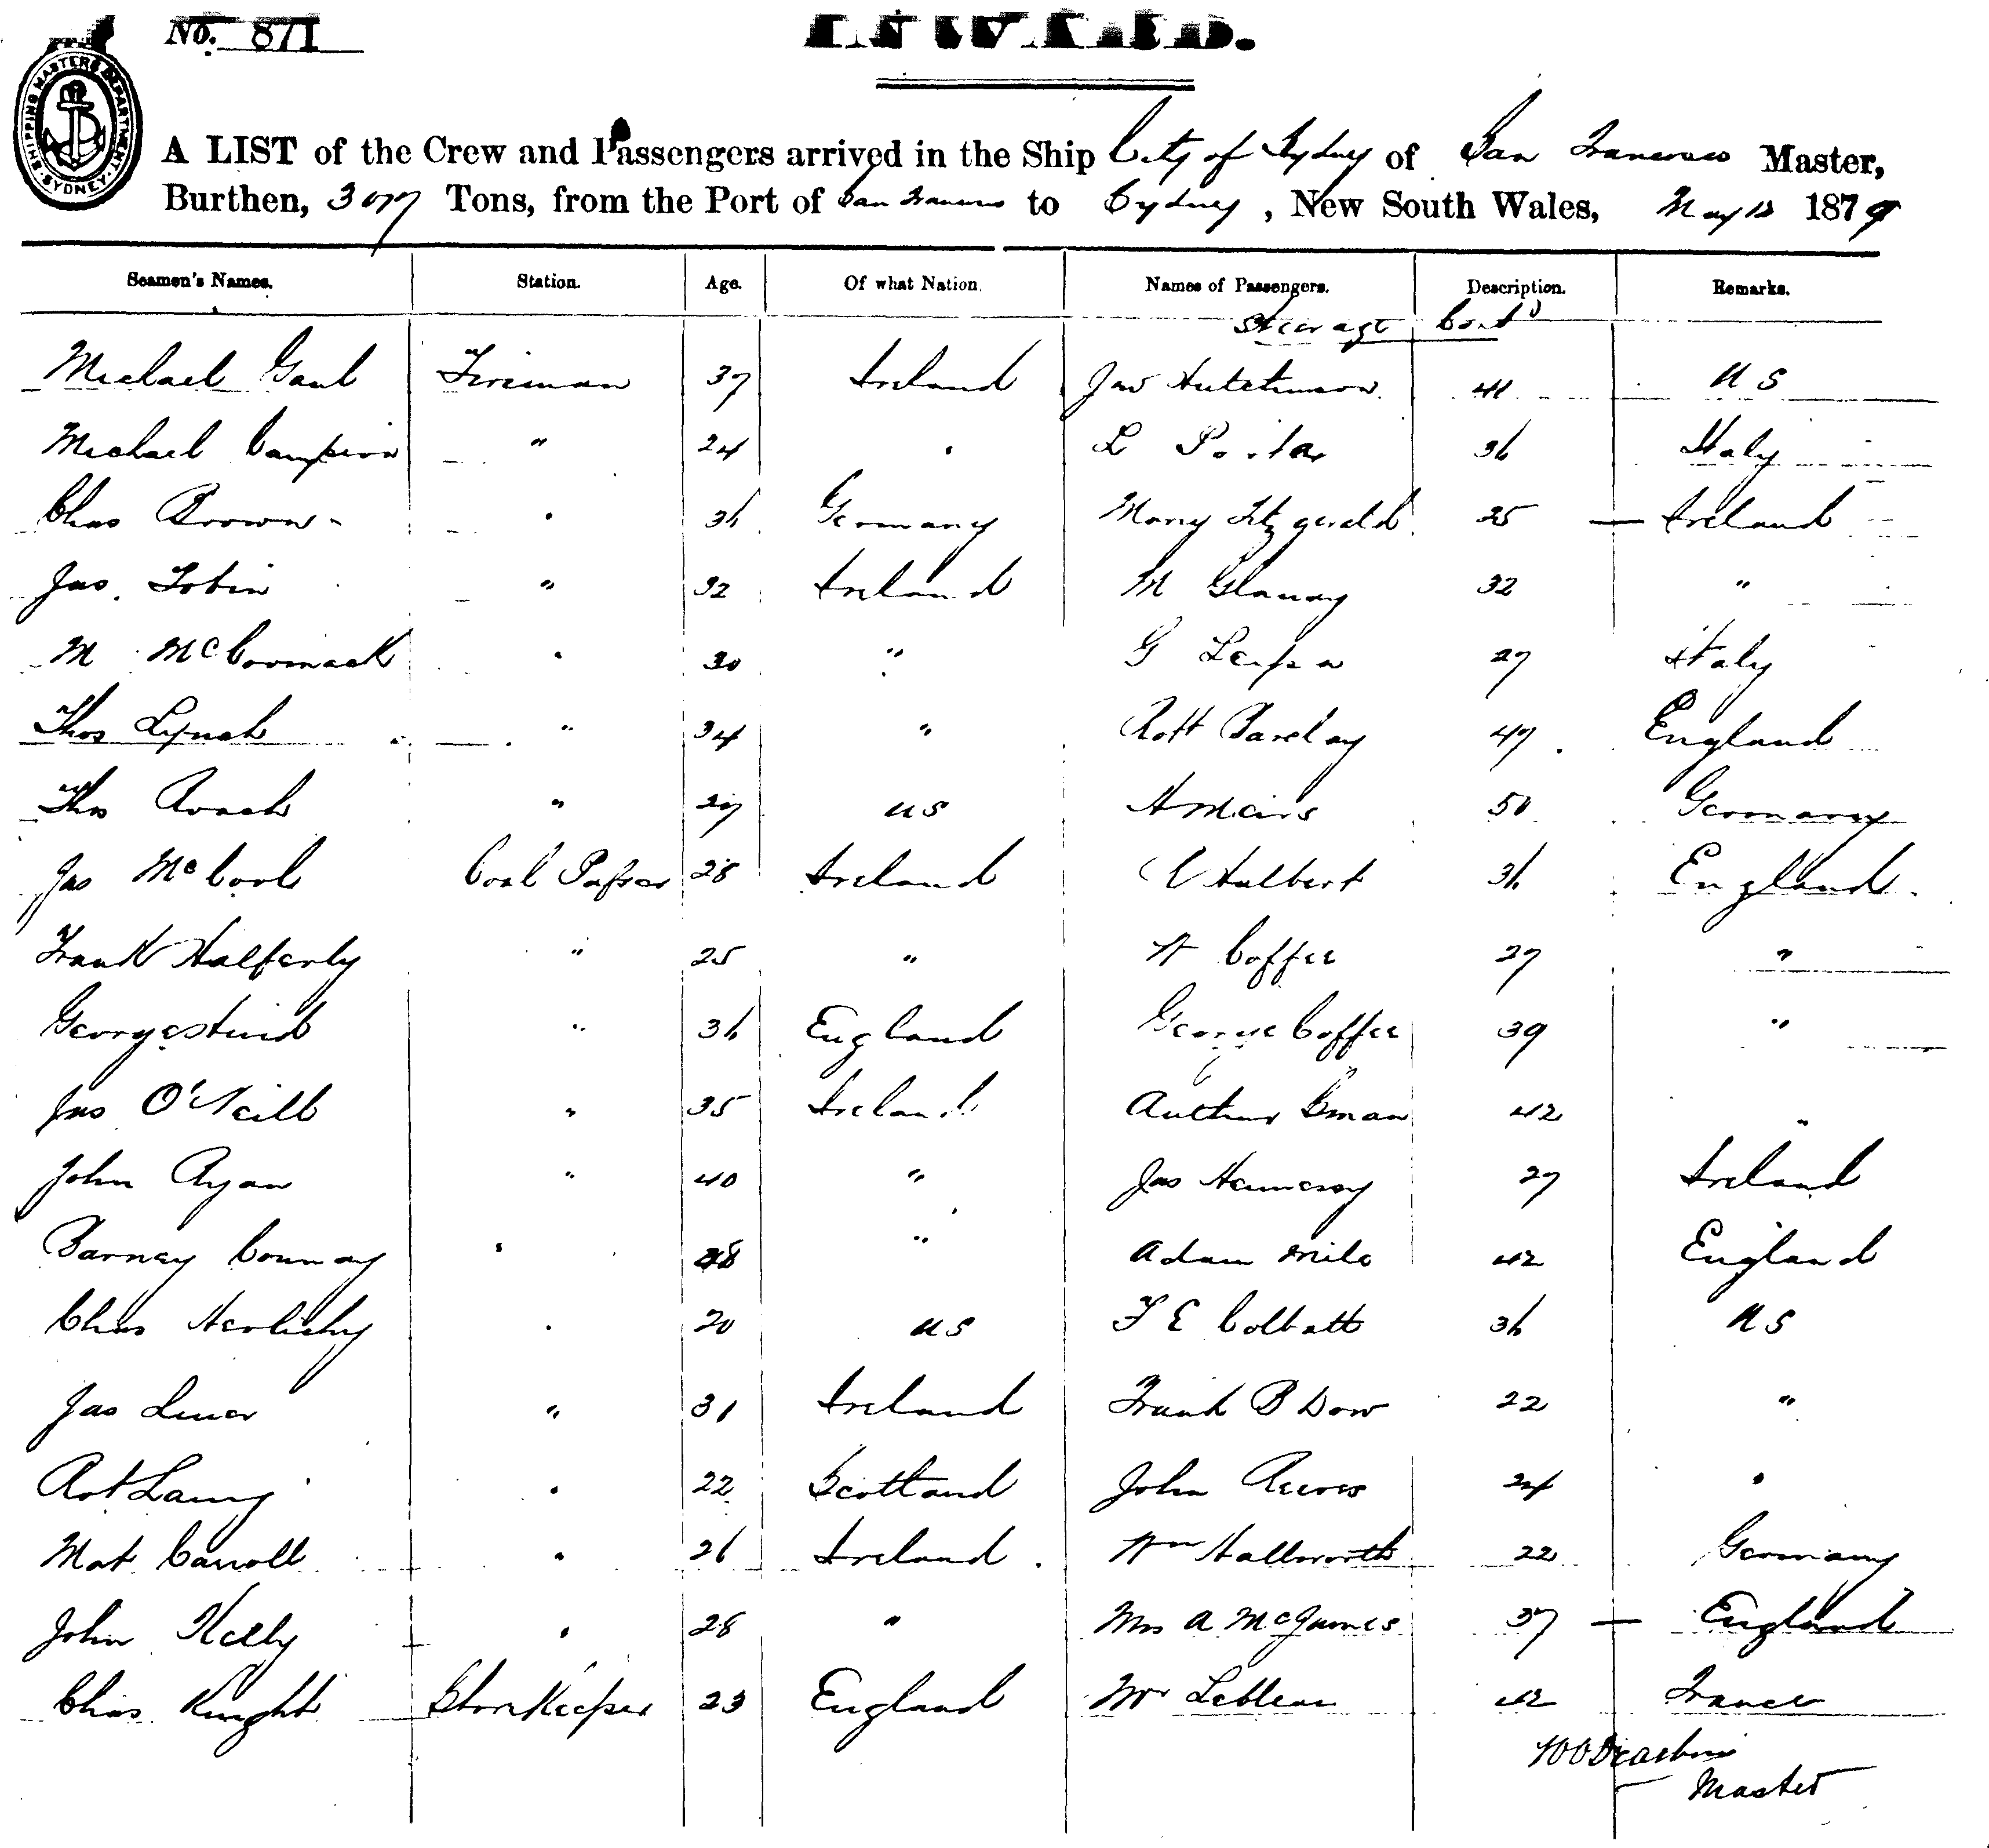 No. 871
INWARD.
SHIPPING MASTERS DEPARTMENT SYDNEY
A LIST of the Crew and Passengers arrived in the Ship City of Sydney of San Francisco Master,
Burthen, Tons, from the Port of San Francisco to Sydney, New South Wales, May 12 1879
Seamen's Names. Station. Age. Of what Nation. Names of Passengers. Description. Remarks.
Steerage Contd
Michael Gaul Fireman 37 Ireland Jas Hutchinson 41 U S
Michael Campion " 24 " L 36 Italy
Chas Brown " 36 Germany Mary Fitzgerald 25 — Ireland
Jas. Tobin " 32 Ireland M 32 "
M McCormack " 30 " G 27 Italy
Thos Lynch " 34 " Robt Barclay 47 England
Thos Roach " 29 US H 50 Germany
Jas McCool Coal Passer 28 Ireland Hulbert 36 England
Frank Halferty " 25 " W Coffee 27 "
George " 36 England George Coffee 39 "
Jas O'Neill " 35 Ireland 42 "
John Ryan " 40 " Jas Hennessy 27 Ireland
Barney " 48 " Adam 42 England
Chas Herlichy " 20 US F E Colbath 36 US
Jas " 31 Ireland Frank B Dow 22 "
Rot Laing " 22 Scotland John Reeves 24 "
Mat Carroll " 26 Ireland Wm Hallworth 22 Germany
John Kelly " 28 " Mrs A McJames 37 — England
Chas Knight StoreKeeper 23 England Mr Lebleau 42 France
Master